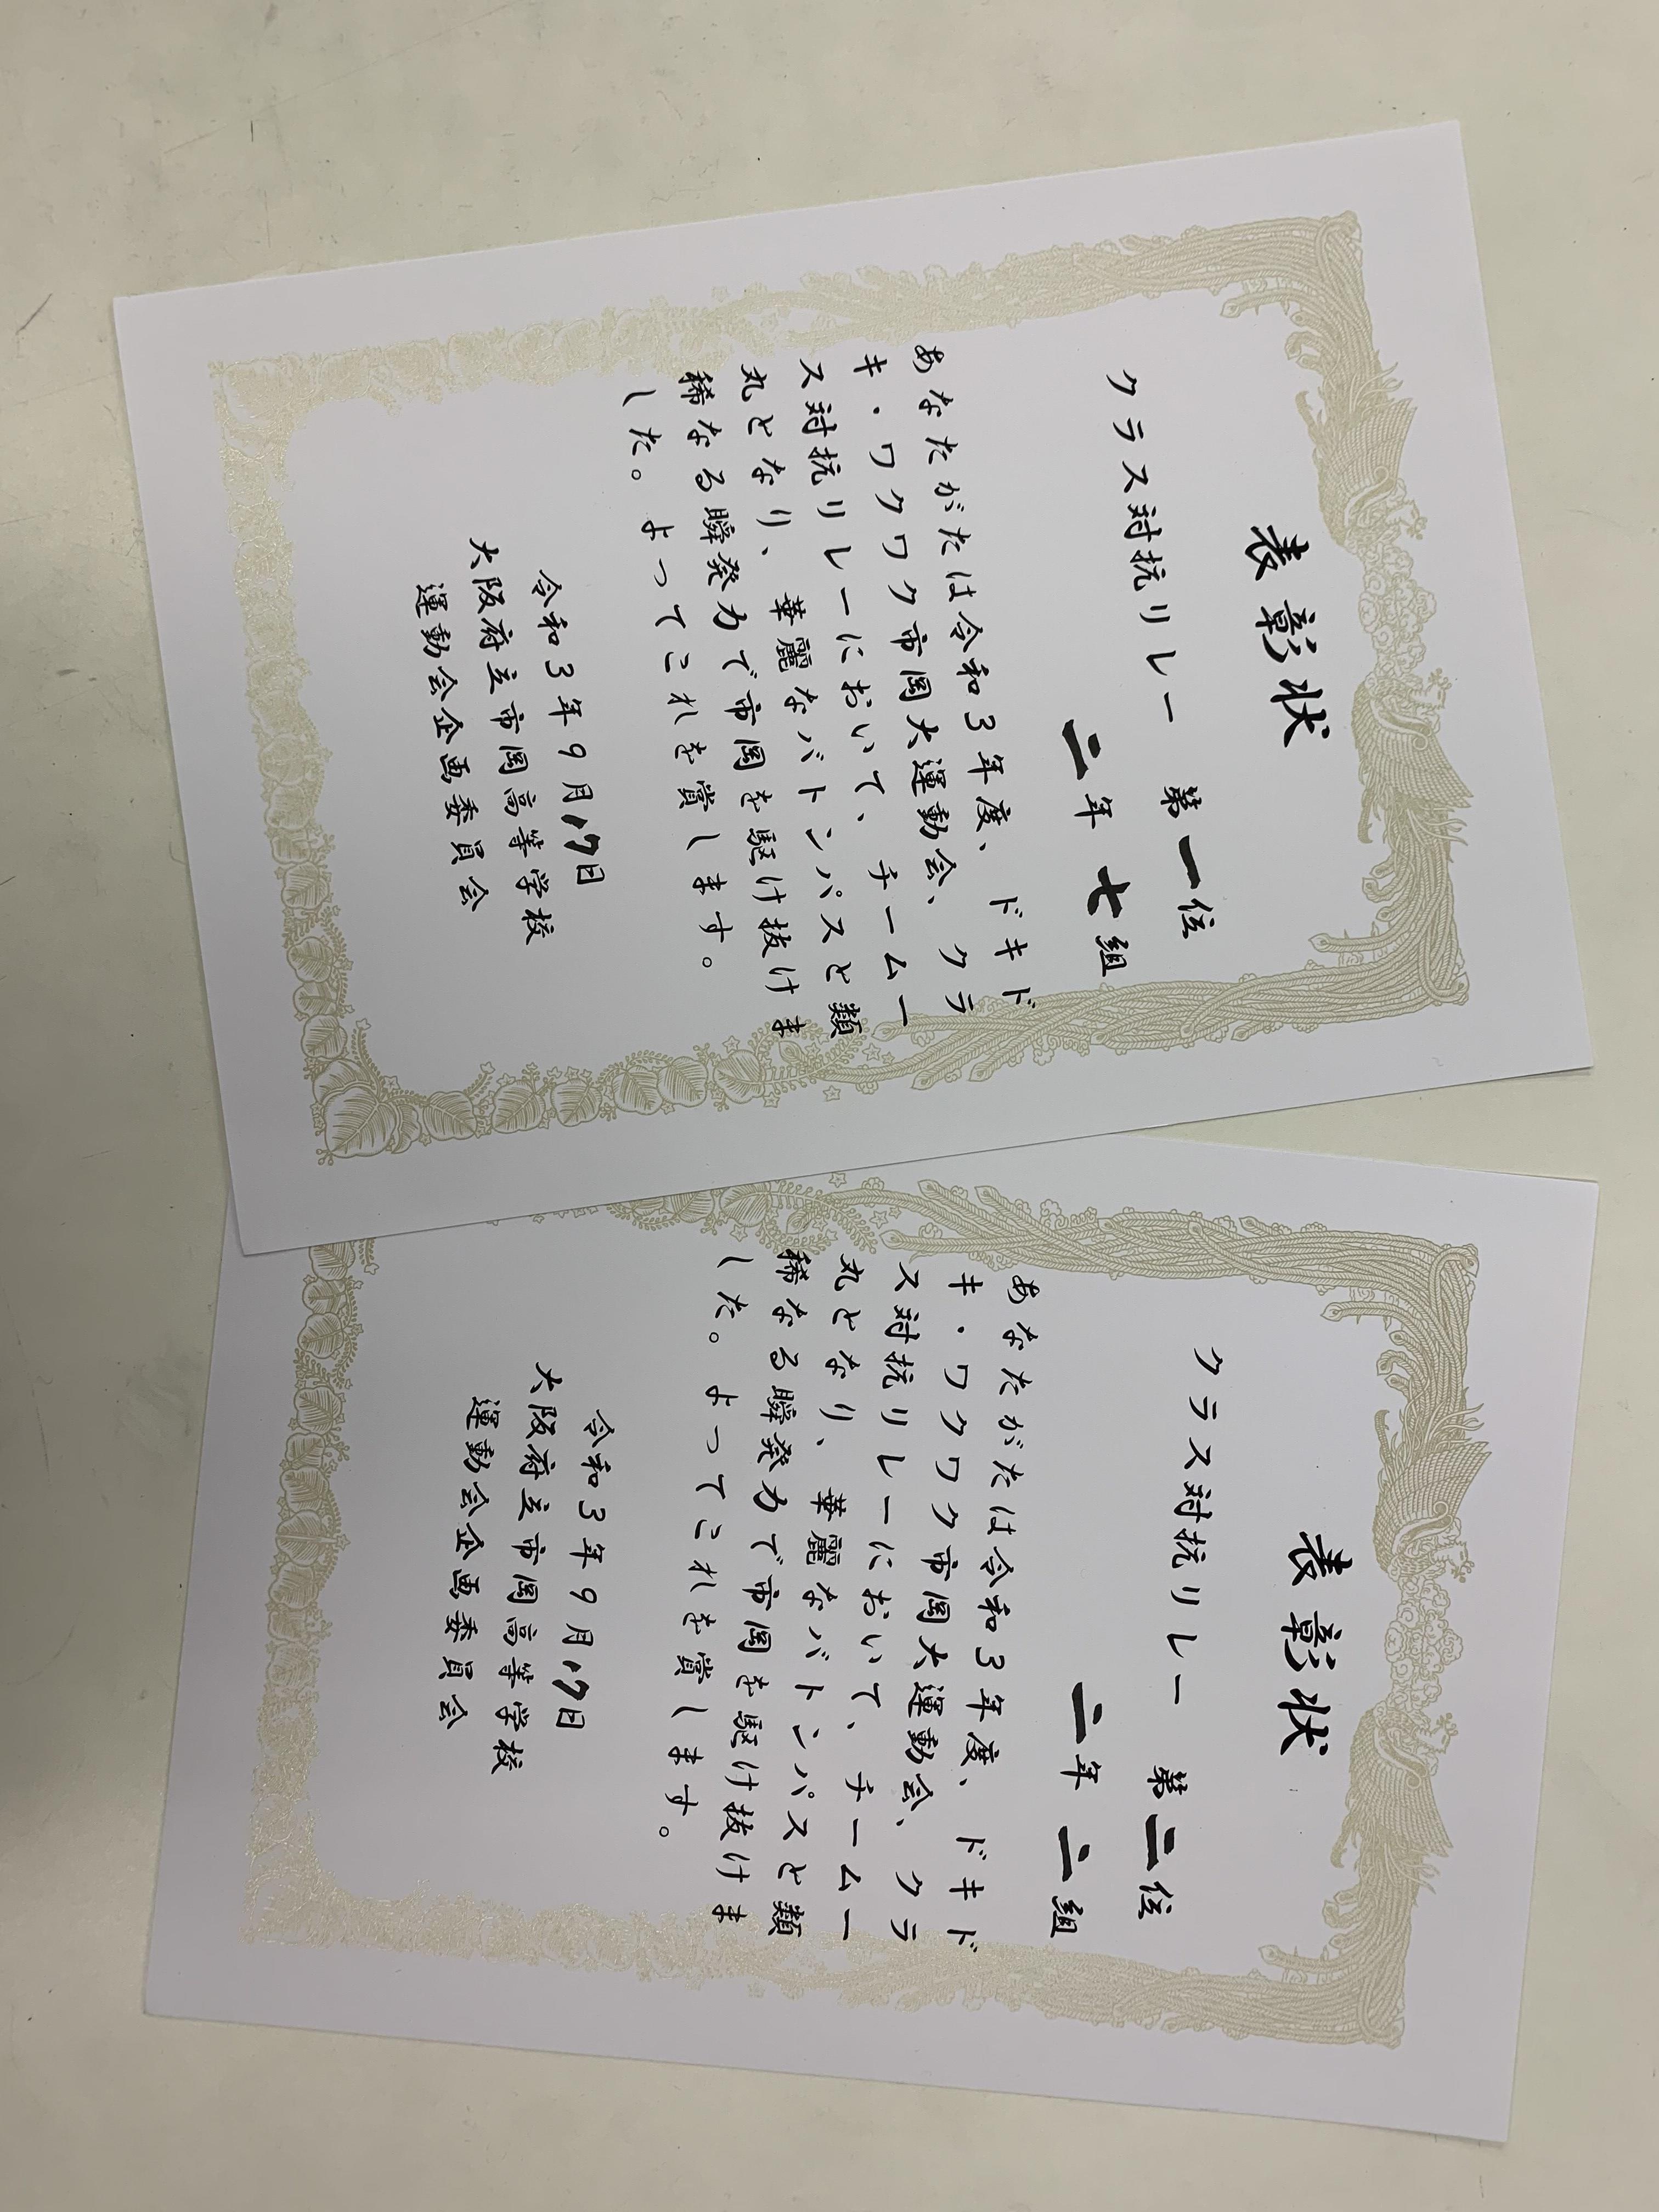 表彰状
クラス対抗リレー 第一位
二年 七組
あなたがたは令和3年度、ドキド
キ・ワクワク市岡大運動会、クラ
ス対抗リレーにおいて、チーム一
丸となり、華麗なバトンパスと類
稀なる瞬発力で市岡を駆け抜けま
した。よってこれを賞します。
令和3年9月17日
大阪府立市岡高等学校
運動会企画委員会
表彰状
クラス対抗リレー 第二位
二年 二組
あなたがたは令和3年度、ドキド
キ・ワクワク市岡大運動会、クラ
ス対抗リレーにおいて、チーム一
丸となり、華麗なバトンパスと類
稀なる瞬発力で市岡を駆け抜けま
した。よってこれを賞します。
令和3年9月17日
大阪府立市岡高等学校
運動会企画委員会